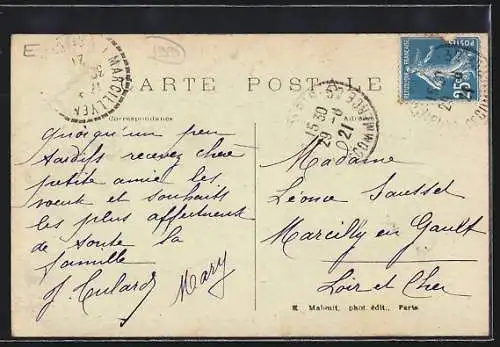 E
MARCILLY EN
CARTE POSTALE
Correspondance
Adresse
15 30
29 - 6
21
25c
POSTES
Quoiqu'un peu
tardifs recevez chère
petite amie les
voeux et souhaits
les plus affectueux
de toute la
famille
Mary
Madame
Léonce Sausset
Marcilly en Gault
Loir et Cher
E. Malcuit, phot édit., Paris